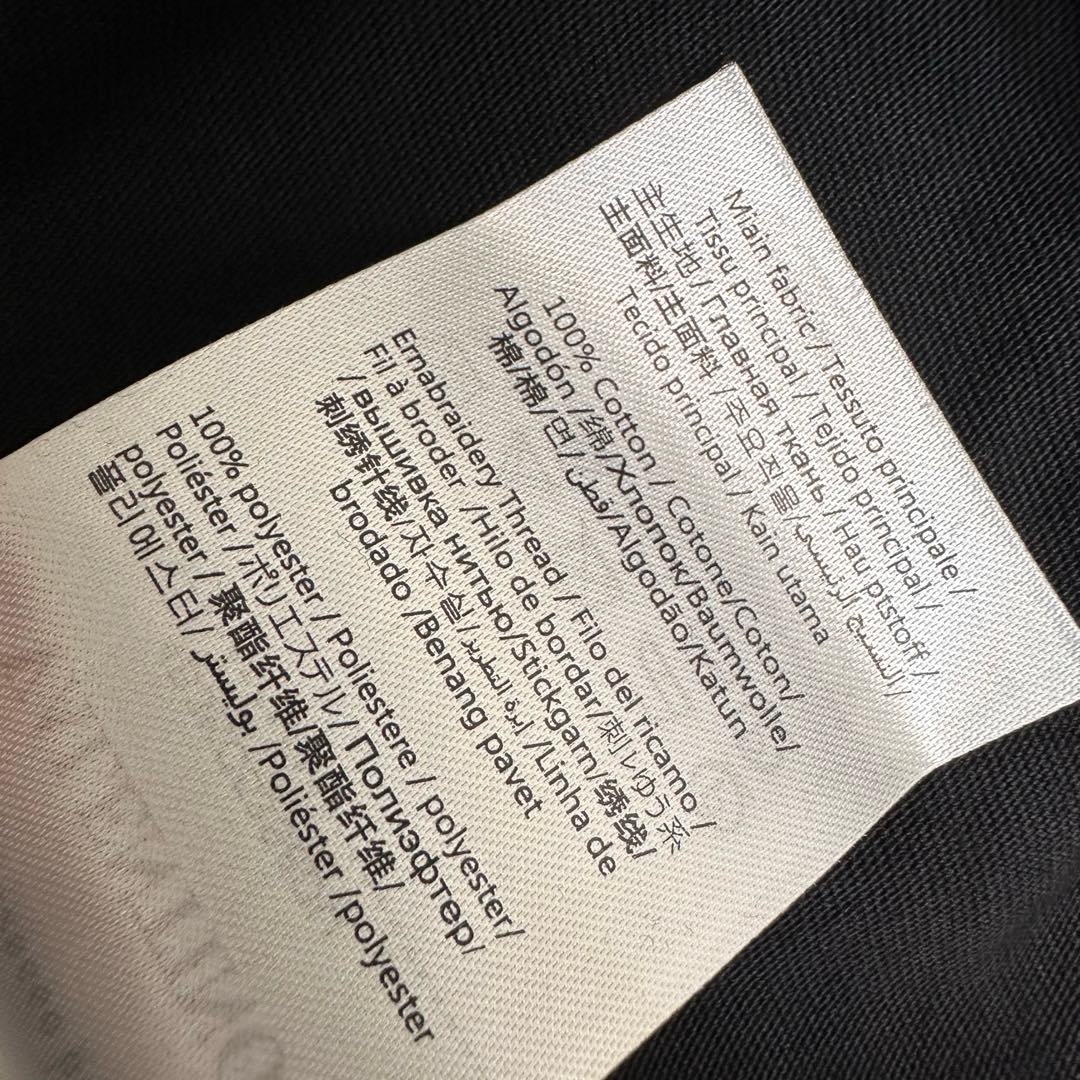 Miain fabric / Tessuto principale /
Tissu principal / Tejido principal /
主生地 / Главная ткань / Hau ptstoff /
主面料/主面料 /주요직물/ النسيج الرئيسي /
Tecido principal / Kain utama
100% Cotton / Cotone/Coton/
Algodón /绵/Хлопок/Baumwolle/
棉/棉/면/ قطن /Algodāo/Katun
Ernabraidery Thread / Filo del ricamo /
Fil à broder /Hilo de bordar/刺しゆう糸
/Вышивка нитью/Stickgarn/绣线/
刺绣针线/자수실/ ابرة التطريز /Linha de
brodado /Benang pavet
100% polyester / Poliestere / polyester/
Poliéster /ポリエステル/ Полиэфтер/
polyester / 聚酯纤维/聚酯纤维/
폴리에스터/ بوليستر /Poliéster /polyester